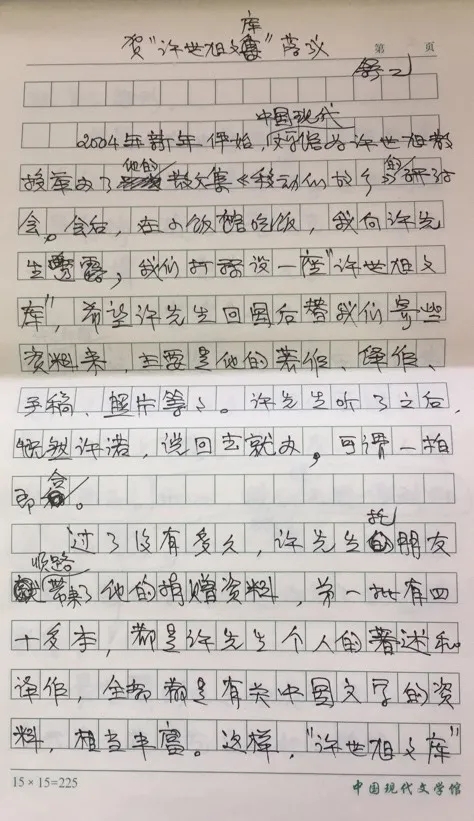 贺“许世旭文库”落成
第 页
舒乙
2004年新年伊始,中国现代文学馆为许世旭教
授举办了他的散文集《移动的故乡》的研讨
会。会后,在小饭馆吃饭,我向许先
生透露,我们打算设一座“许世旭文
库”,希望许先生回国后替我们寄些
资料来,主要是他的著作、译作、
手稿、照片等等。许先生听了之后,
慨然许诺,说回去就办,可谓一拍
即合。
过了没有多久,许先生托朋友
顺路带来了他的捐赠资料,第一批有四
十多本,都是许先生个人的著述和
译作,全部都是有关中国文学的资
料,相当丰富。这样,“许世旭文库”
15×15=225
中国现代文学馆